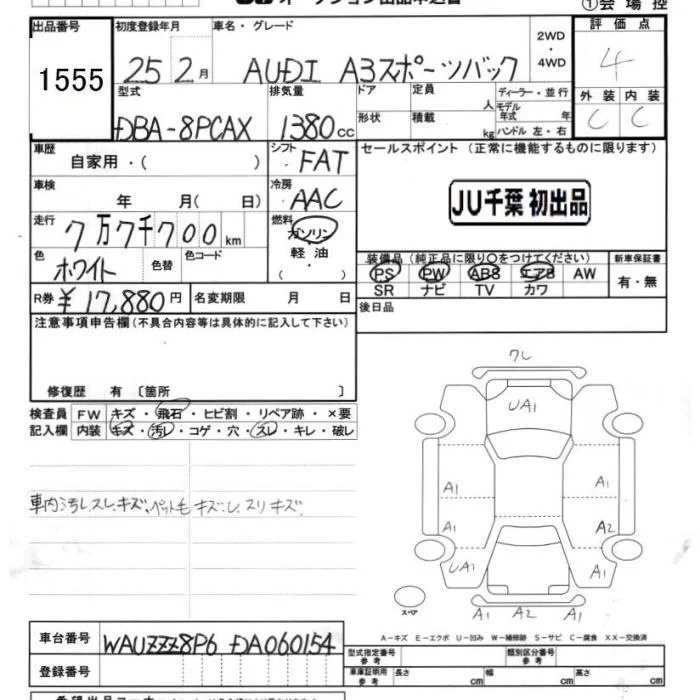 ①会場控
出品番号 初度登録年月 車名・グレード 2WD・4WD 評価点
1555 25 2月 AUDI A3スポーツバック 4
型式 排気量 ドア 定員 人 ディーラー・並行 外装 内装
DBA-8PCAX 1380cc 形状 積載 kg モデル年式 年 ハンドル 左・右 C C
車歴 自家用・( ) シフト FAT セールスポイント (正常に機能するものに限ります)
車検 年 月( 日) 冷房 AAC JU千葉 初出品
走行 7万7千700km 燃料 ガソリン 軽油 ・( )
色 ホワイト 色替 色コード 装備品(純正品に限り○をつけてください) 新車保証書
PS PW AB8 エア8 AW 有・無
SR ナビ TV カワ
R券 ¥17,880円 名変期限 月 日 後日品
注意事項申告欄(不具合内容等は具体的に記入して下さい)
修復歴 有 〔箇所 〕
検査員 FW キズ・飛石・ヒビ割・リペア跡・×要
記入欄 内装 キズ・汚レ・コゲ・穴・スレ・キレ・破レ
車内汚レスレ・キズ、ペット毛 キズ・し、スリキズ
ワレ
UA1
A1 A1
A1 A2
UA1 A1
A1 A2 A1
スペア
A-キズ E-エクボ U-凹み W-補修跡 S-サビ C-腐食 XX-交換済
車台番号 WAUZZZ8P6 DA060154 型式指定番号 参考 類別区分番号 参考
登録番号 車庫証明用 参考 長さ cm 幅 cm 高さ cm